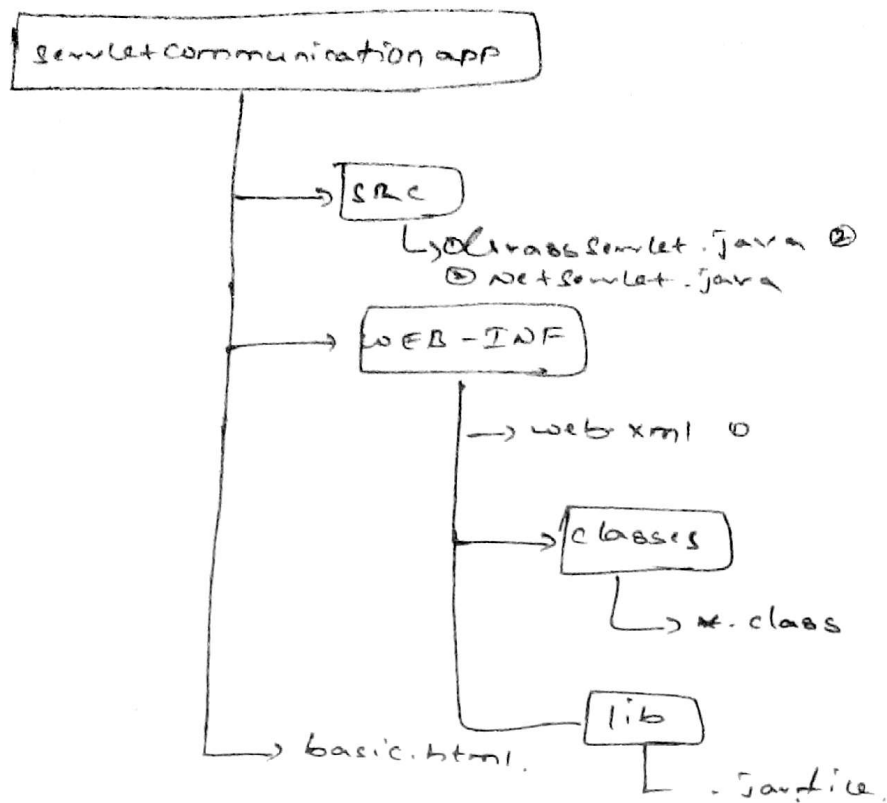 servletcommunication app
SRC
GrassServlet.java ②
② NetServlet.java
WEB-INF
web.xml
classes
*.class
lib
basic.html.
.jar file.